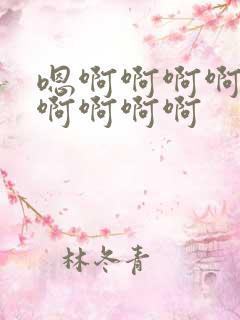 嗯啊啊啊啊
啊啊啊啊
林冬青